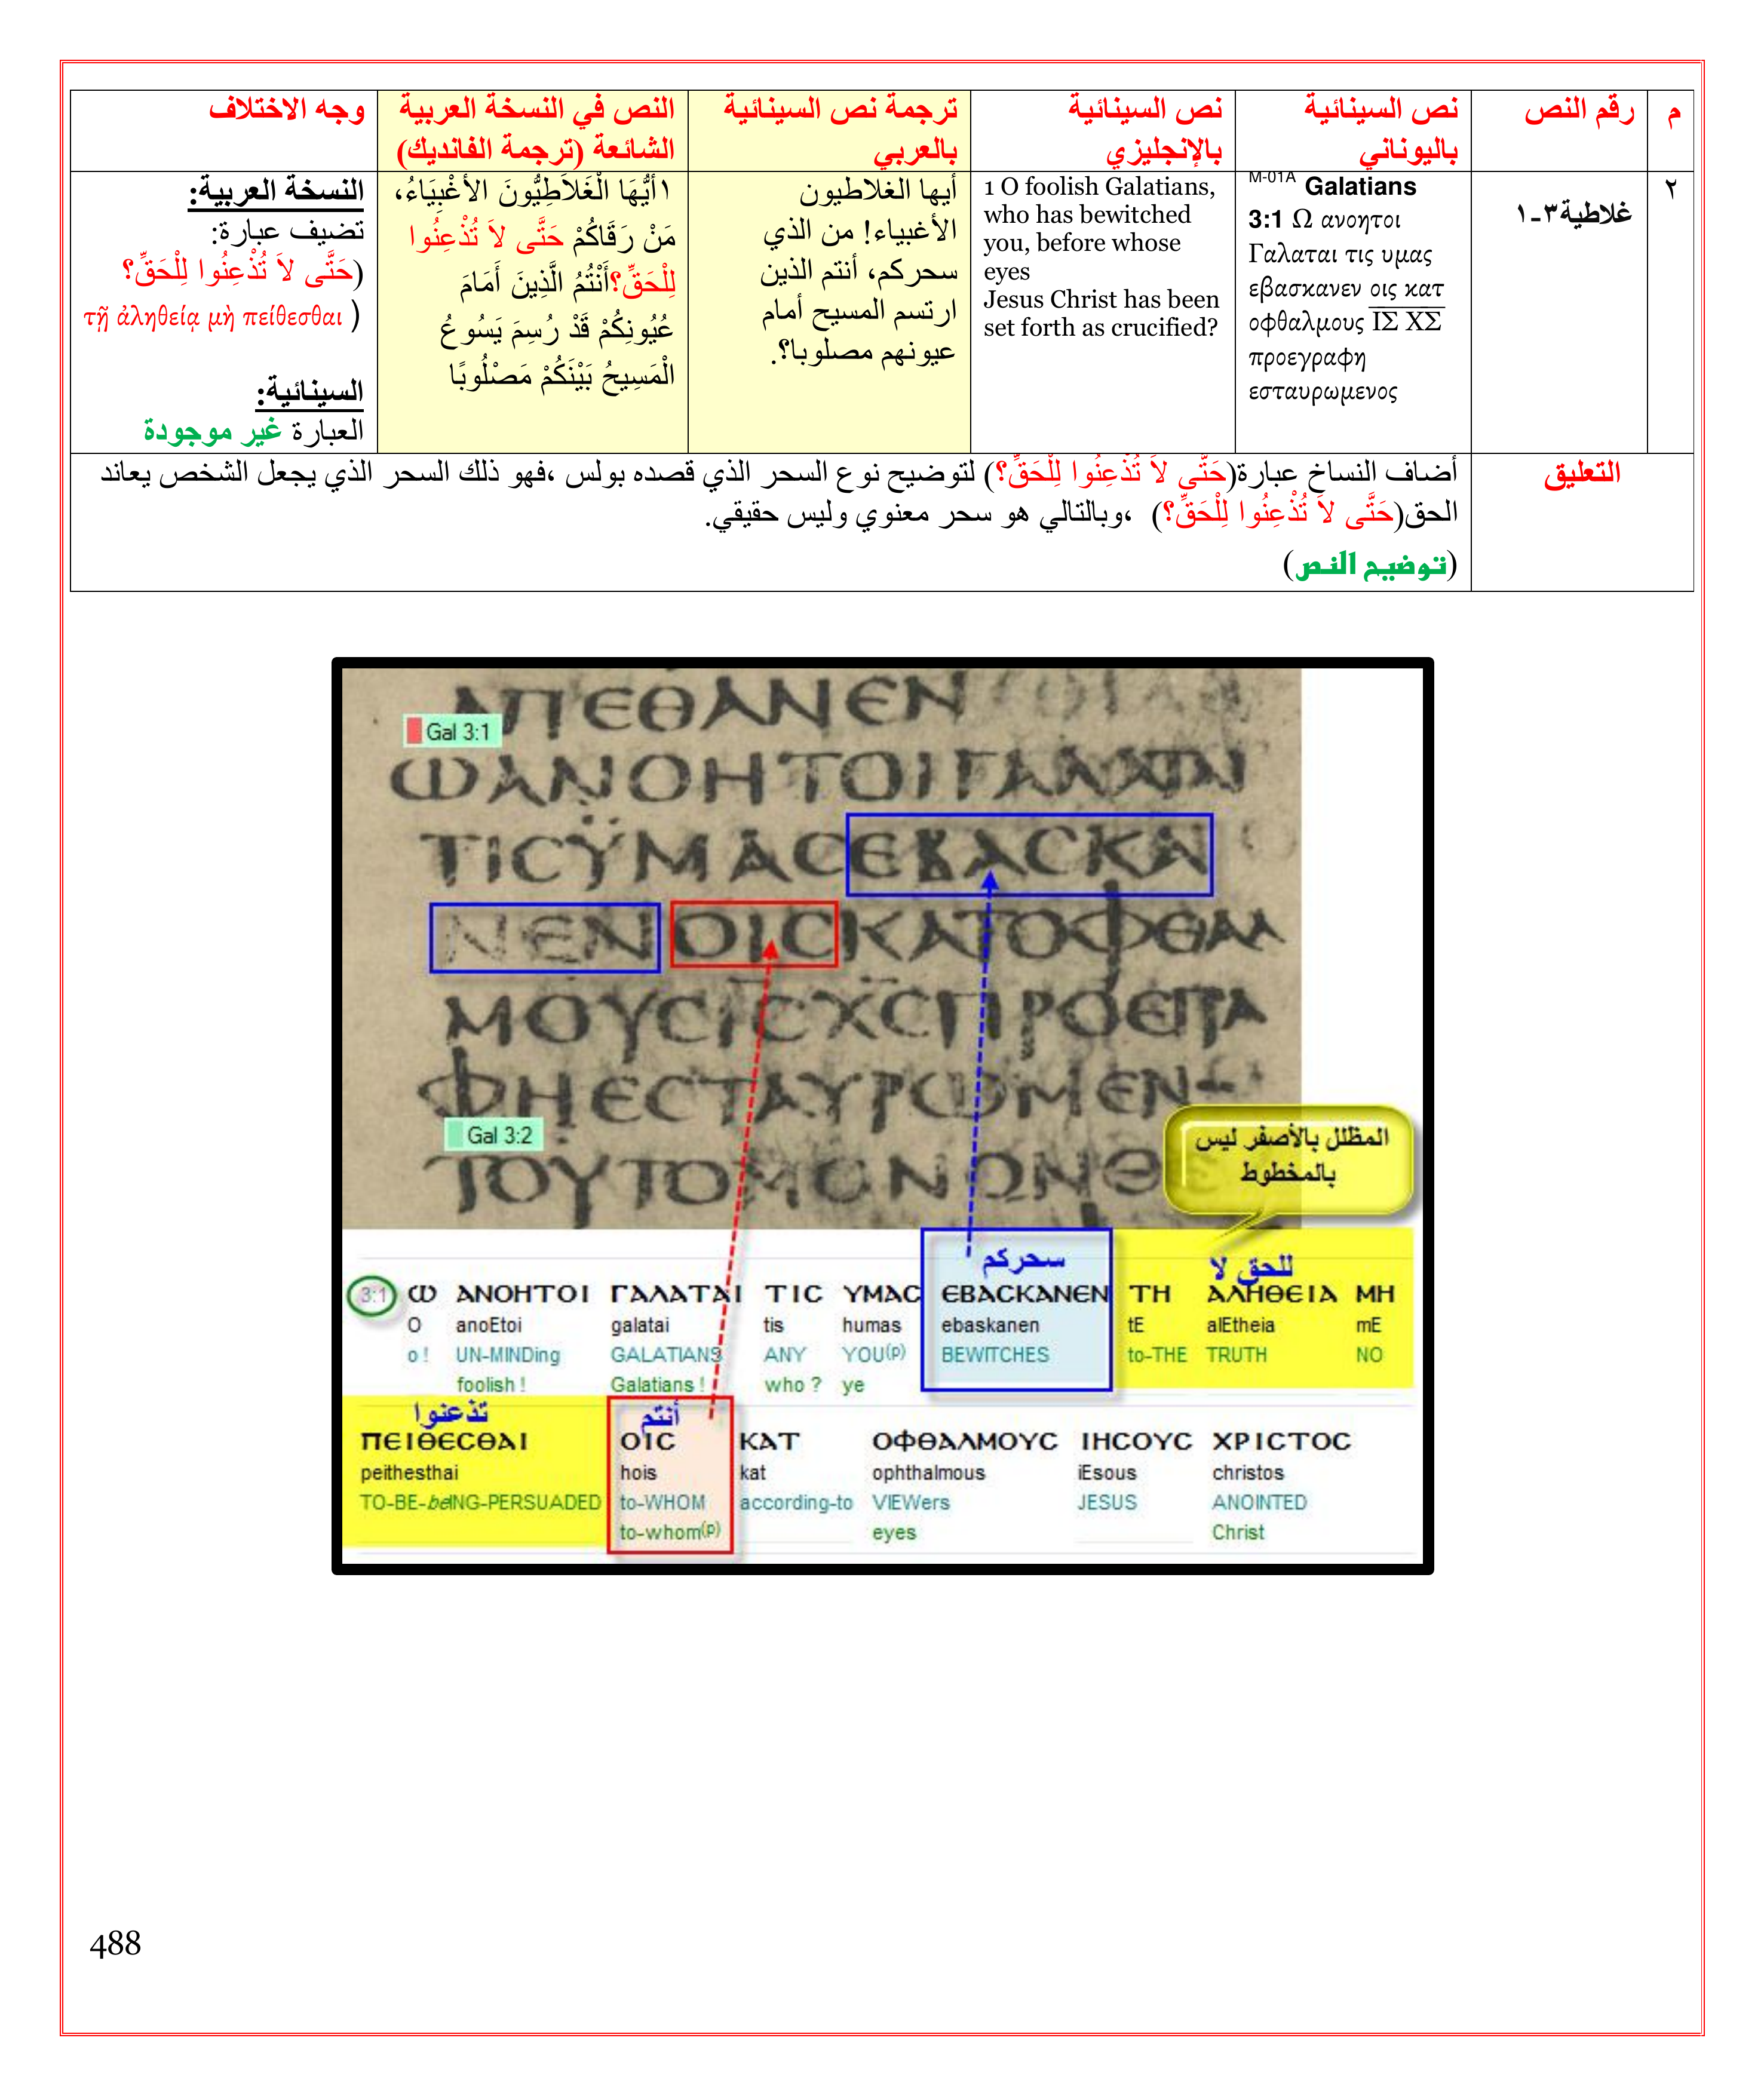 م
رقم النص
نص السينائية
باليوناني
نص السينائية
بالإنجليزي
ترجمة نص السينائية
بالعربي
النص في النسخة العربية
الشائعة (ترجمة الفانديك)
وجه الاختلاف
٢
غلاطية٣-١
M-01A Galatians
3:1 Ω ανοητοι
Γαλαται τις υμας
εβασκανεν οις κατ
οφθαλμους ΙΣ ΧΣ
προεγραφη
εσταυρωμενος
1 O foolish Galatians,
who has bewitched
you, before whose
eyes
Jesus Christ has been
set forth as crucified?
أيها الغلاطيون
الأغبياء! من الذي
سحركم، أنتم الذين
ارتسم المسيح أمام
عيونهم مصلوبا؟.
١أَيُّهَا الْغَلاَطِيُّونَ الأَغْبِيَاءُ،
مَنْ رَقَاكُمْ حَتَّى لاَ تُذْعِنُوا
لِلْحَقِّ؟أَنْتُمُ الَّذِينَ أَمَامَ
عُيُونِكُمْ قَدْ رُسِمَ يَسُوعُ
الْمَسِيحُ بَيْنَكُمْ مَصْلُوبًا
النسخة العربية:
تضيف عبارة:
(حَتَّى لاَ تُذْعِنُوا لِلْحَقِّ؟
τῇ ἀληθείᾳ μὴ πείθεσθαι )
السينائية:
العبارة غير موجودة
التعليق
أضاف النساخ عبارة(حَتَّى لاَ تُذْعِنُوا لِلْحَقِّ؟) لتوضيح نوع السحر الذي قصده بولس ،فهو ذلك السحر الذي يجعل الشخص يعاند
الحق(حَتَّى لاَ تُذْعِنُوا لِلْحَقِّ؟) ،وبالتالي هو سحر معنوي وليس حقيقي.
(توضيح النص)
ΑΠΕΘΑΝΕΝ
Gal 3:1
ΩΑΝΟΗΤΟΙΓΑΛΑΤΑΙ
ΤΙϹΫΜΑϹΕΒΑϹΚΑ
ΝΕΝΟΙϹΚΑΤΟΦΘΑΛ
ΜΟΥϹΙϹΧϹΠΡΟΕΓΡΑ
ΦΗΕϹΤΑΥΡΩΜΕΝ
Gal 3:2
ΤΟΥΤΟΜΟΝΟΝΘΕ
المظلل بالأصفر ليس
بالمخطوط
سحركم
للحق لا
3:1 Ω ΑΝΟΗΤΟΙ ΓΑΛΑΤΑΙ ΤΙϹ ΥΜΑϹ ΕΒΑϹΚΑΝΕΝ ΤΗ ΑΛΗΘΕΙΑ ΜΗ
O anoEtoi galatai tis humas ebaskanen tE alEtheia mE
o ! UN-MINDing GALATIANS ANY YOU(p) BEWITCHES to-THE TRUTH NO
foolish ! Galatians ! who ? ye
تذعنوا
أنتم
ΠΕΙΘΕϹΘΑΙ ΟΙϹ ΚΑΤ ΟΦΘΑΛΜΟΥϹ ΙΗϹΟΥϹ ΧΡΙϹΤΟϹ
peithesthai hois kat ophthalmous iEsous christos
TO-BE-beING-PERSUADED to-WHOM according-to VIEWers JESUS ANOINTED
to-whom(p) eyes Christ
488